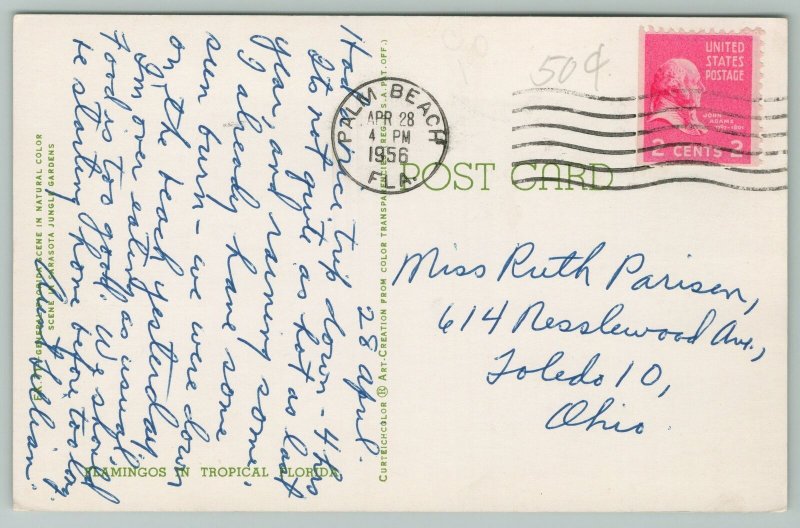 28 April.
Had nice trip down - 4 hrs
Its not quite as hot as last
year and raining some.
I already have some
sun burn - we were down
on the beach yesterday
I'm over eating as usual,
Food is too good. We should
be starting home before too long
Aunt Lillian
FLAMINGOS IN TROPICAL FLORIDA
SCENE IN SARASOTA JUNGLE GARDENS
CURTEICHCOLOR ® ART-CREATION FROM COLOR TRANSPARENCIES (REG. U.S.A. PAT. OFF.)
50¢
PALM BEACH
APR 28
4 PM
1956
FLA.
UNITED
STATES
POSTAGE
JOHN
ADAMS
2 CENTS 2
POST CARD
Miss Ruth Parisen,
614 Nesslewood Ave.,
Toledo 10,
Ohio